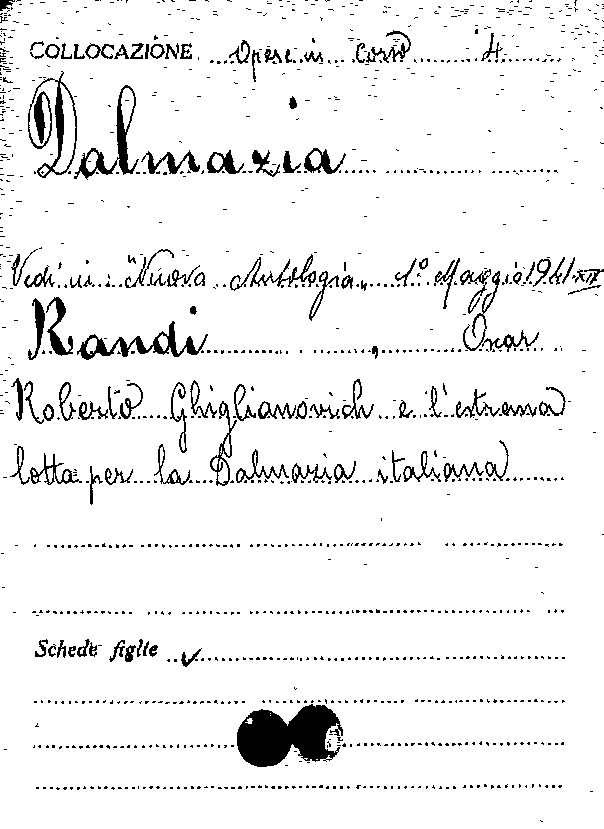 COLLOCAZIONE Opere in corso 4
Dalmazia
Vedi in: "Nuova Antologia" 1º Maggio 1941-XIX
Randi, Oscar
Roberto Ghiglianovich e l'estrema
lotta per la Dalmazia italiana
Schede figlie ✓